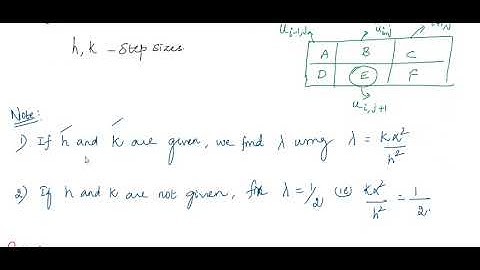 h, k - step sizes
u i-1,j
u i,j
A B C
D E F
u i,j+1
Note:
1) If h and k are given, we find λ using λ = kα²/h²
2) If h and k are not given, fix λ = 1/2 (ie) kα²/h² = 1/2.